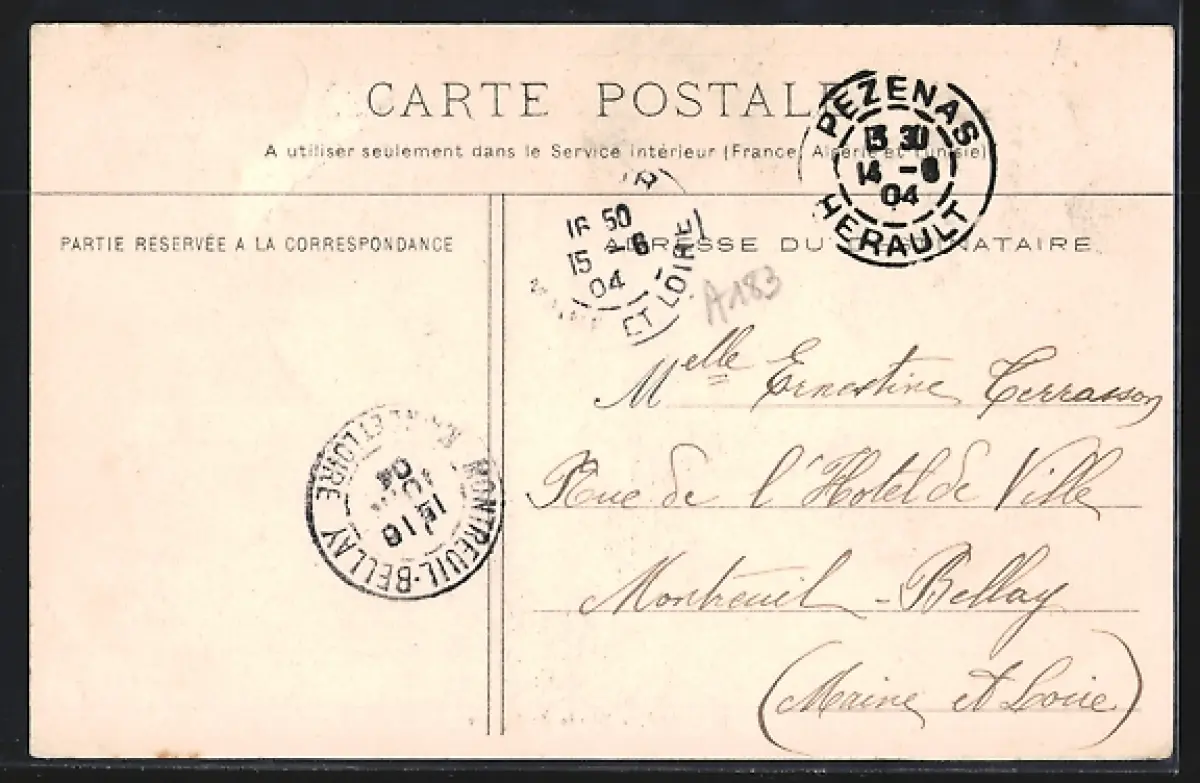 CARTE POSTALE
A utiliser seulement dans le Service intérieur (France, Algérie et Tunisie)
PEZENAS
14 -6
04
HERAULT
PARTIE RÉSERVÉE A LA CORRESPONDANCE
ADRESSE DU DESTINATAIRE
16 50
15 -6
04
ET LOIRE
A183
Melle Ernestine Terrasson
Rue de l'Hotel de Ville
Montreuil-Bellay
(Maine et Loire)
MONTREUIL-BELLAY
ET LOIRE
04